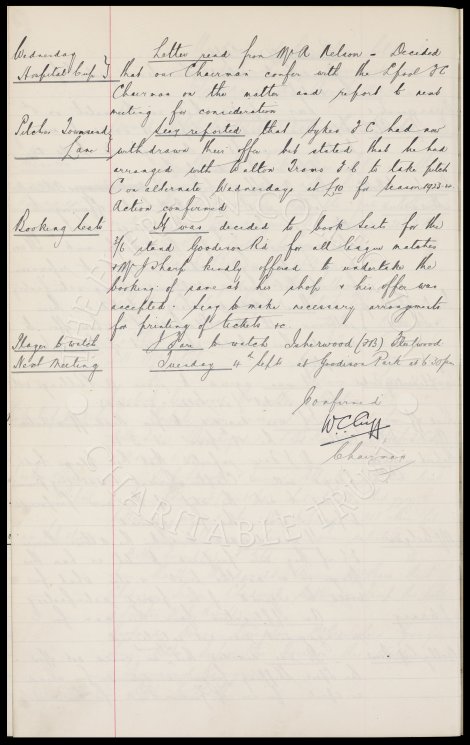 Wednesday Letter read from Mr A Nelson - Decided
Hospital Cup } that our Chairman confer with the L'pool F C
Chairman on the matter and report to next
meeting for consideration
Pitches Townsend Secy reported that Sykes F C had now
Lane } withdrawn their offer but stated that he had
arranged with Walton Trams F C to take pitch
C on alternate Wednesdays at £10 for season 1923-4
Action confirmed
Booking Seats It was decided to book seats for the
2/6 stand Goodison Rd for all league matches
& Mr J Sharp kindly offered to undertake the
booking of same at his shop & his offer was
accepted. Secy to make necessary arrangements
for printing of tickets &c.
Player to watch to watch Isherwood (FB) Fleetwood
Next Meeting Tuesday 4th Sept at Goodison Park at 6 30 pm
Confirmed
W C Cuff
Chairman
CHARITABLE TRUST